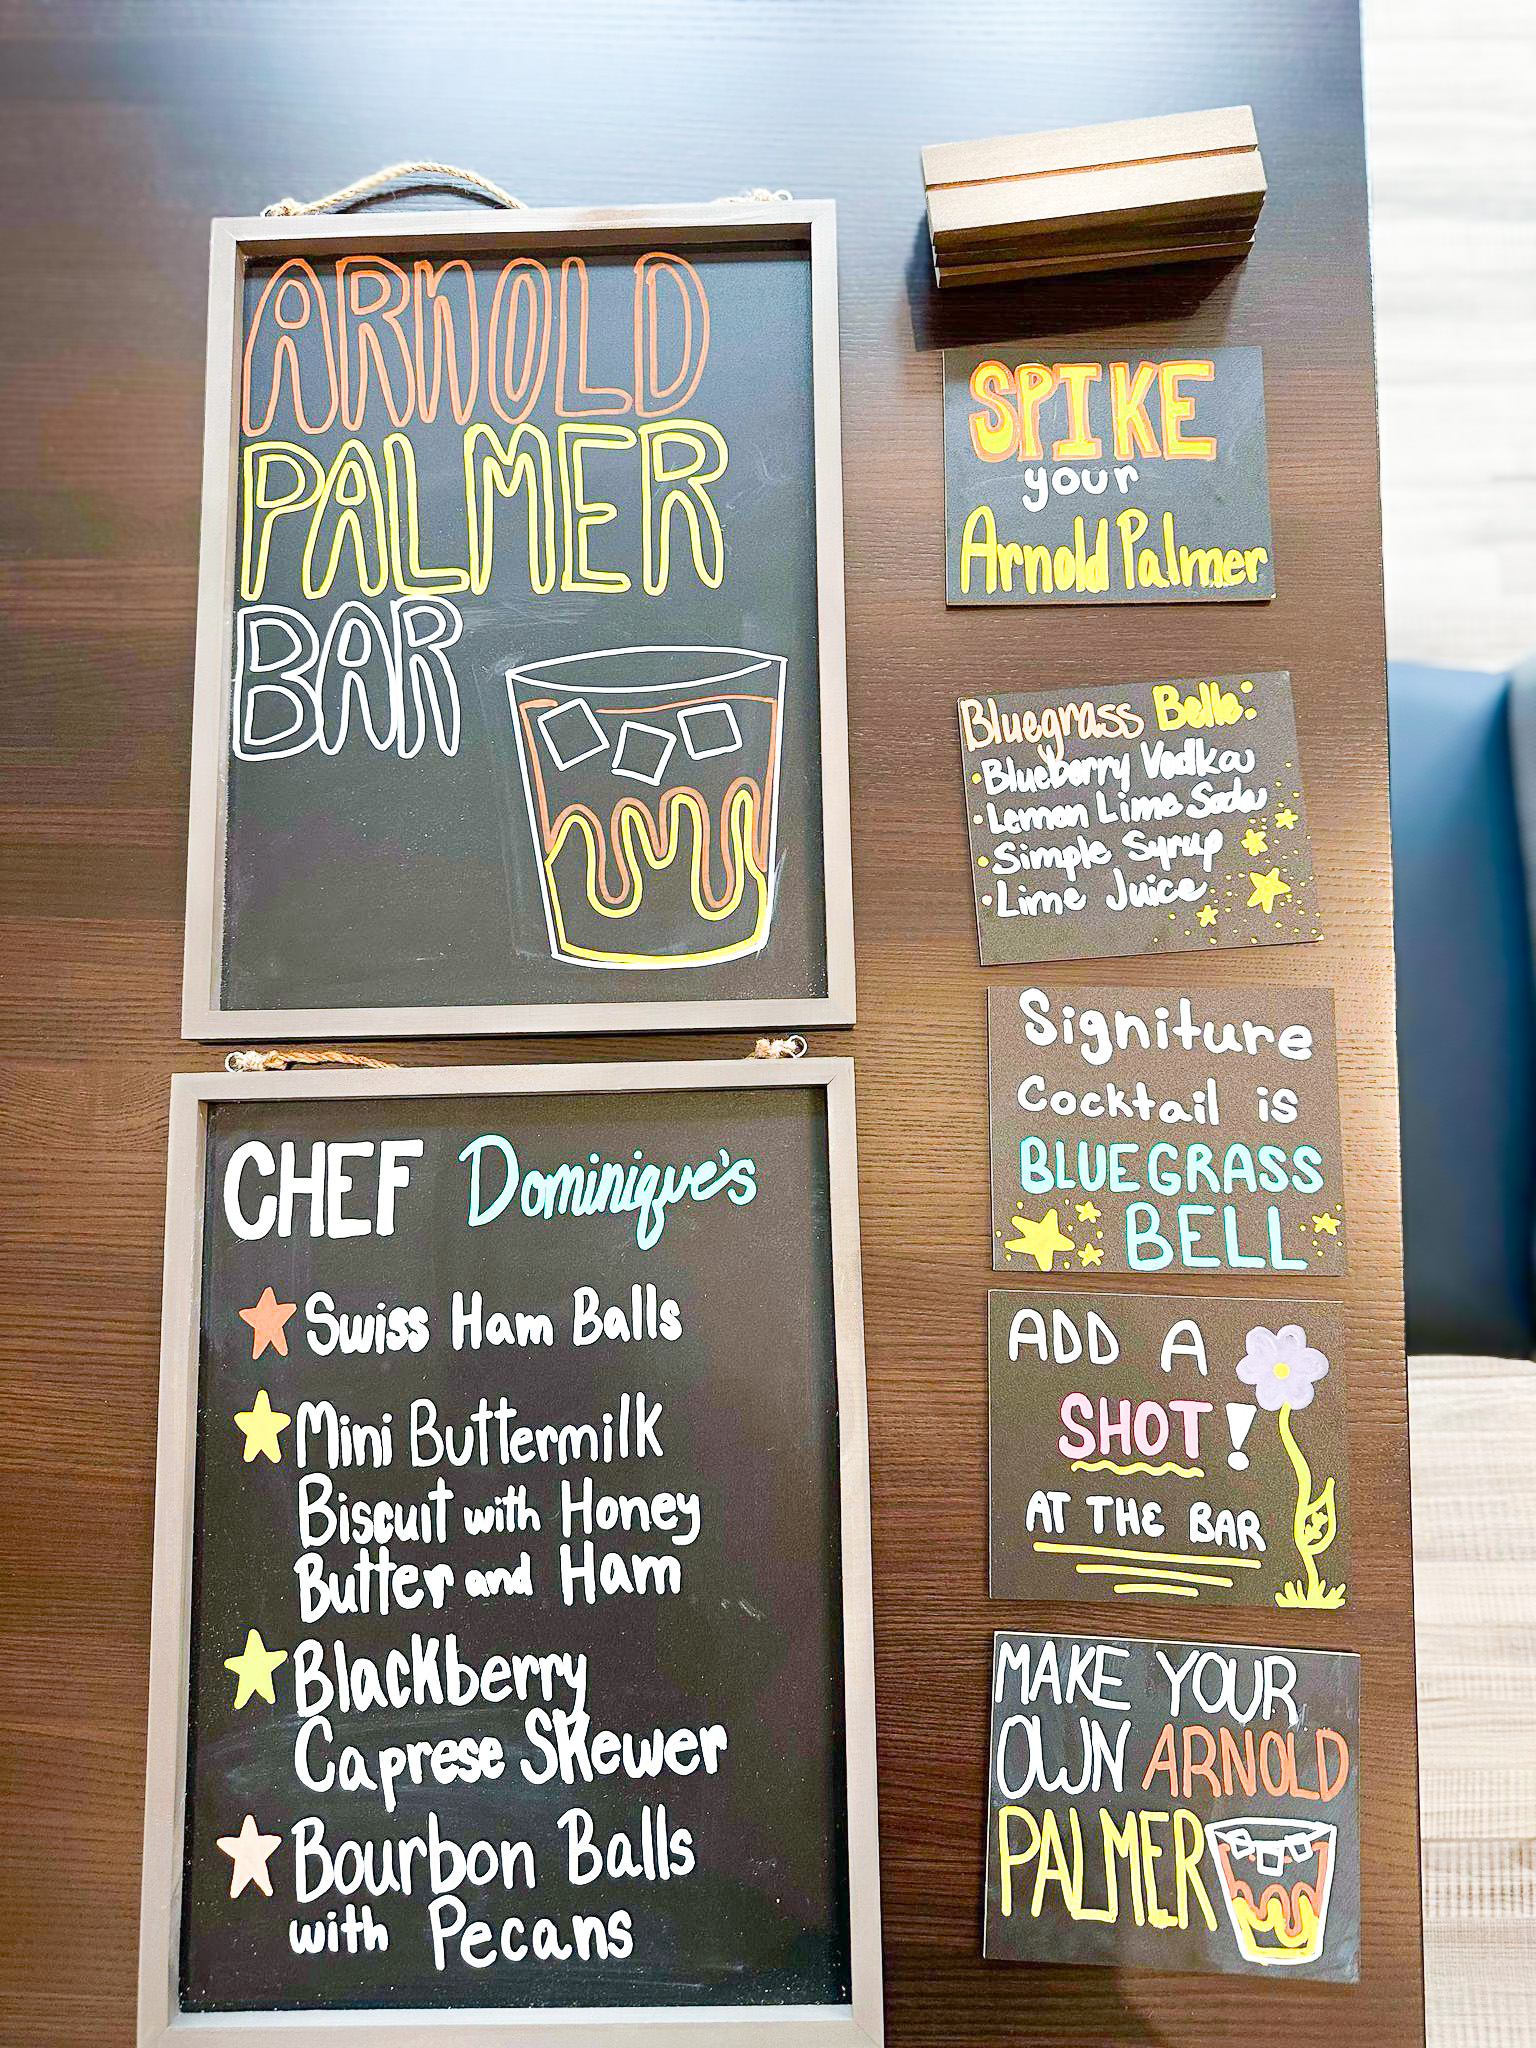 ARNOLD
PALMER
BAR
CHEF Dominique's
Swiss Ham Balls
Mini Buttermilk
Biscuit with Honey
Butter and Ham
Blackberry
Caprese Skewer
Bourbon Balls
with Pecans
SPIKE
your
Arnold Palmer
Bluegrass Belle:
• Blueberry Vodka
• Lemon Lime Soda
• Simple Syrup
• Lime Juice
Signiture
Cocktail is
BLUEGRASS
BELL
ADD A
SHOT!
AT THE BAR
MAKE YOUR
OWN ARNOLD
PALMER